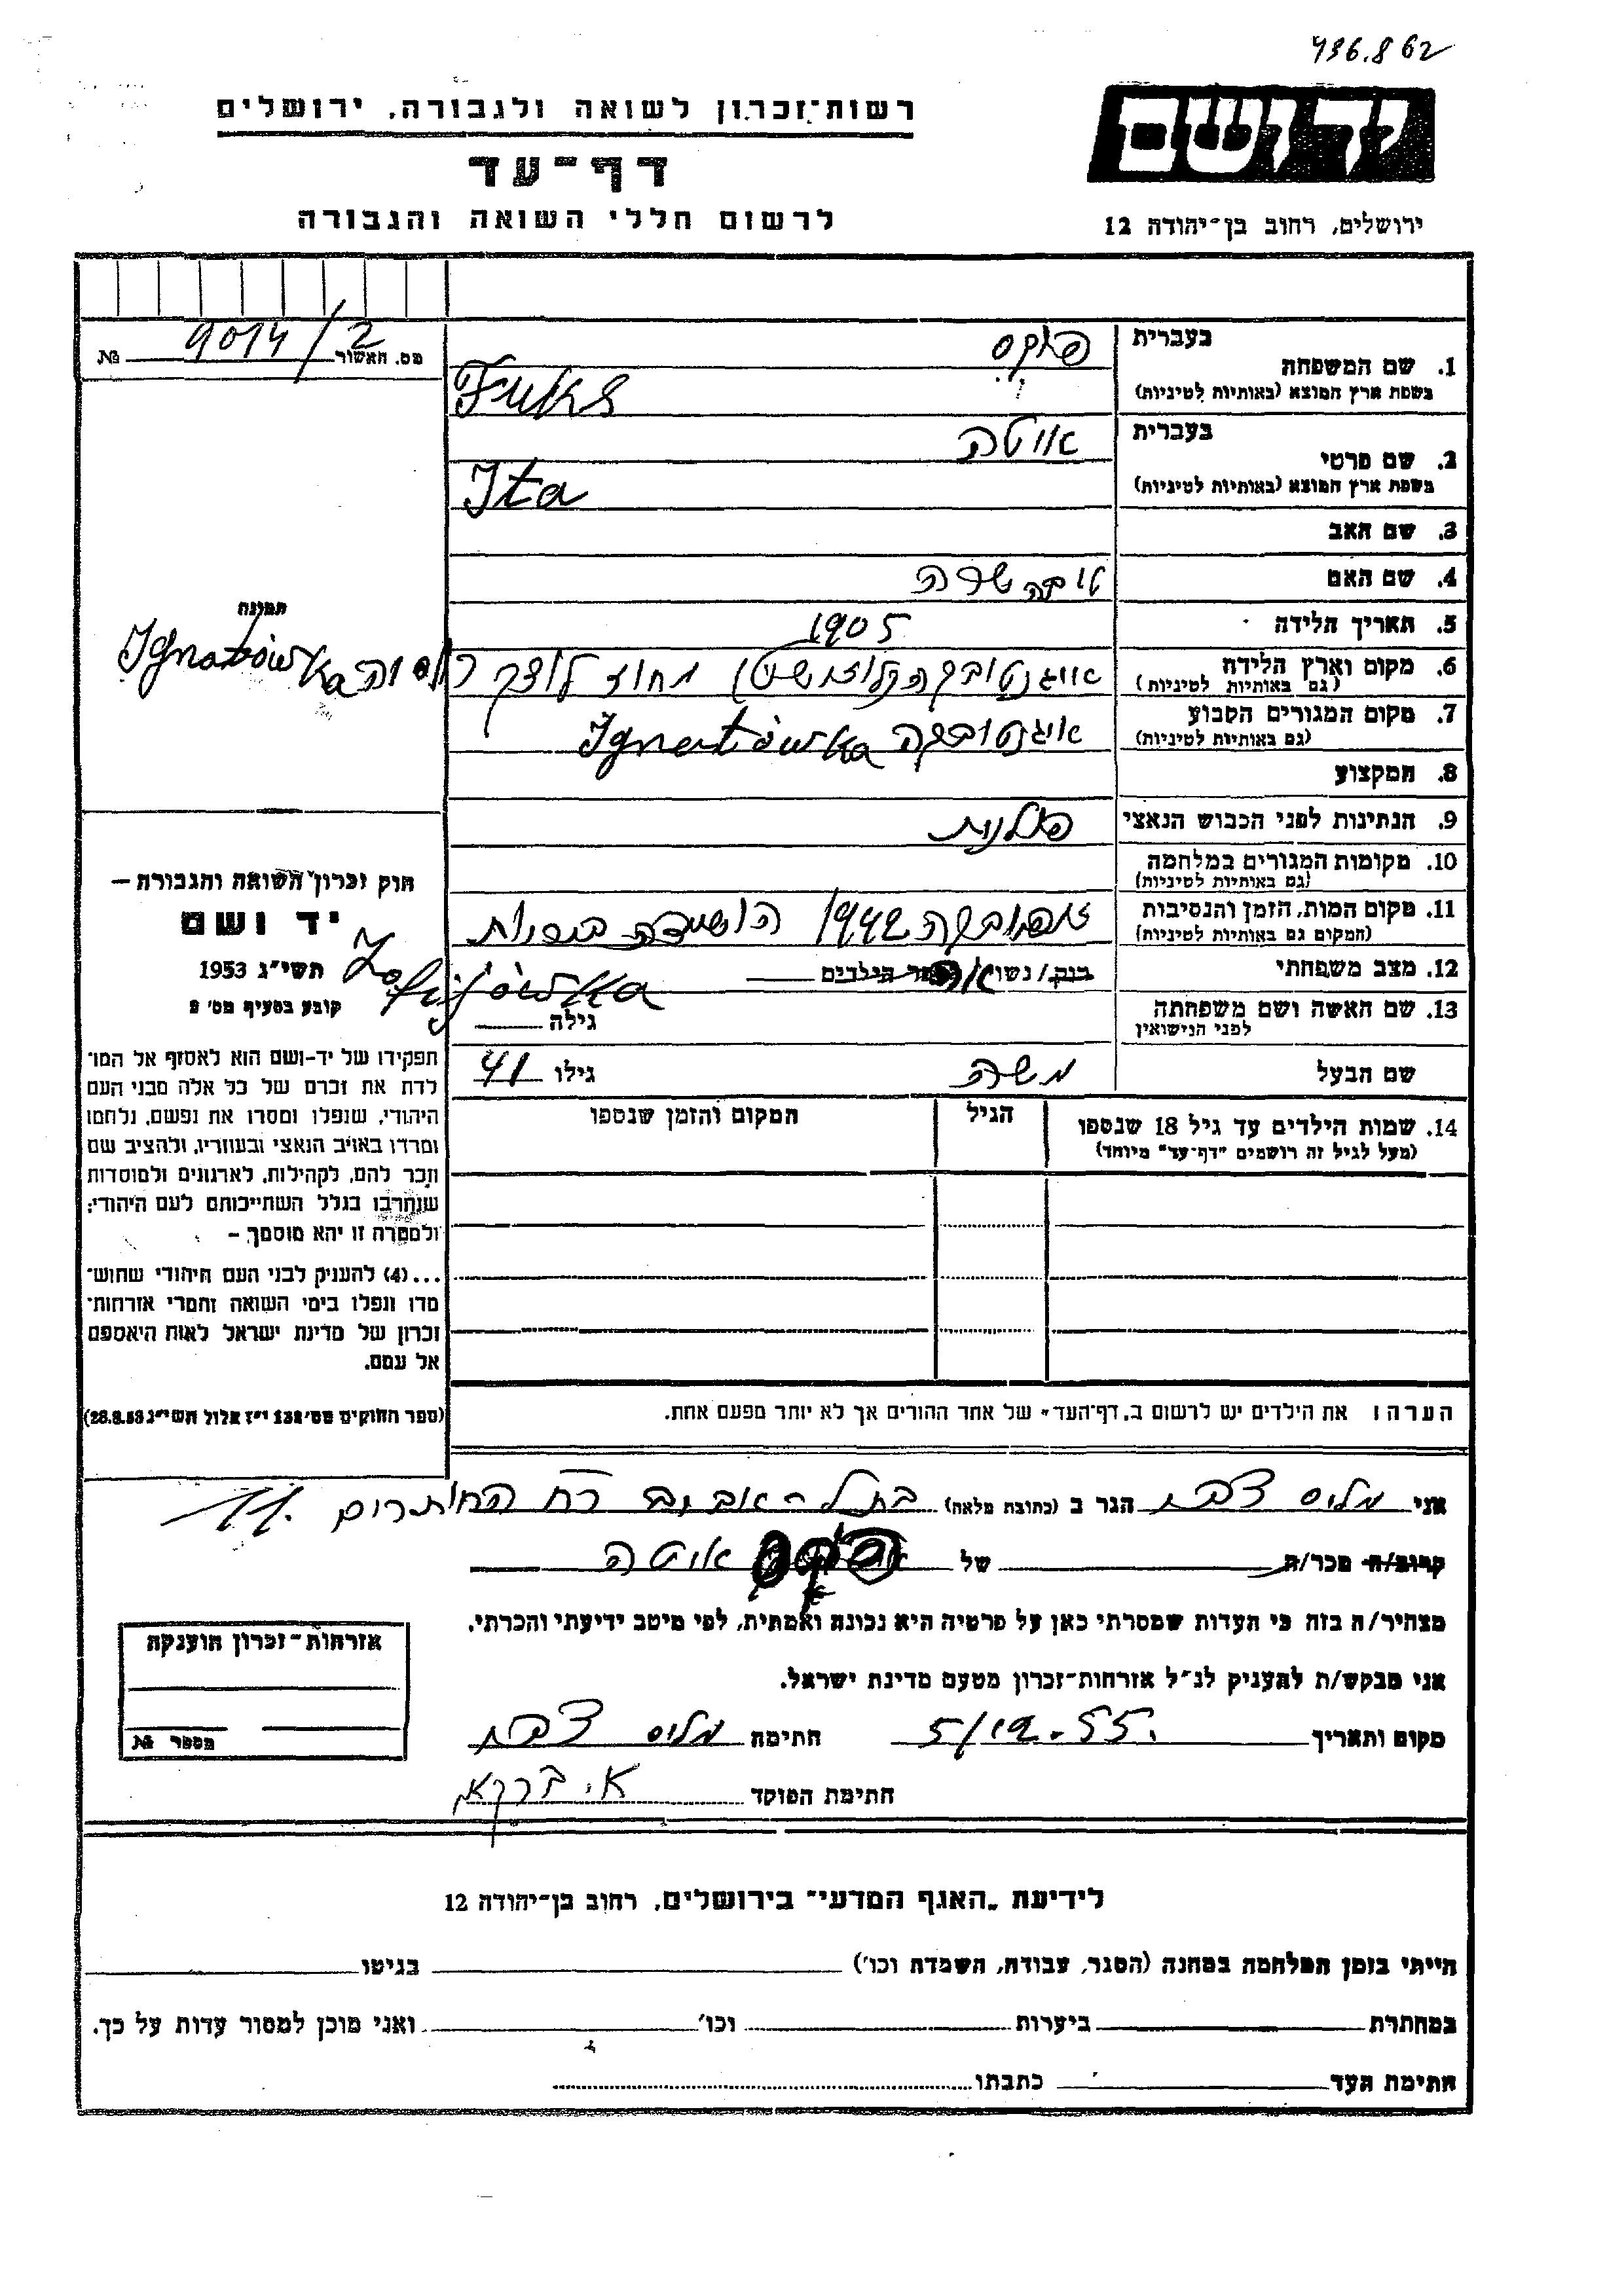 436.862
יד ושם
רשות־זכרון לשואה ולגבורה, ירושלים
דף־עד
לרשום חללי השואה והגבורה
ירושלים, רחוב בן־יהודה 12
מס. האשור 9014/2 №
בעברית
1. שם המשפחה פוקס
בשפת ארץ המוצא (באותיות לטיניות) Fuks
בעברית
2. שם פרטי איטה
בשפת ארץ המוצא (באותיות לטיניות) Ita
3. שם האב
4. שם האם טובה שרה
5. תאריך הלידה 1905
6. מקום וארץ הלידה מחוז לוצק רוסיה Ignatówka
(גם באותיות לטיניות)
7. מקום המגורים הקבוע איגנטובקה Ignatówka
(גם באותיות לטיניות)
8. המקצוע
9. הנתינות לפני הכבוש הנאצי פולנית
10. מקומות המגורים במלחמה
(גם באותיות לטיניות)
11. מקום המות, הזמן והנסיבות 1942 הושמדה
(המקום גם באותיות לטיניות) Zofijówka
12. מצב משפחתי רוק/נשוי אה מספר הילדים
13. שם האשה ושם משפחתה
לפני הנישואין
גילה
שם הבעל משה גילו 41
14. שמות הילדים עד גיל 18 שנספו הגיל המקום והזמן שנספו
(מעל לגיל זה רושמים "דף־עד" מיוחד)
הערה: את הילדים יש לרשום ב„דף־העד" של אחד ההורים אך לא יותר מפעם אחת.
תמונה
חוק זכרון השואה והגבורה –
יד ושם
תשי״ג 1953
קובע בסעיף מס׳ 2
תפקידו של יד־ושם הוא לאסוף אל המו־
לדת את זכרם של כל אלה מבני העם
היהודי, שנפלו ומסרו את נפשם, נלחמו
ומרדו באויב הנאצי ובעוזריו, ולהציב שם
וזכר להם, לקהילות, לארגונים ולמוסדות
שנחרבו בגלל השתייכותם לעם היהודי;
ולמטרה זו יהא מוסמך –
...(4) להעניק לבני העם היהודי שהוש־
מדו ונפלו בימי השואה והמרי אזרחות־
זכרון של מדינת ישראל לאות היאספם
אל עמם.
(ספר החוקים מס׳ 132 י״ז אלול תשי״ג 28.8.53)
אני מליס הגר ב (כתובת מלאה) בתל-אביב רח החותרים 11.
קרוב/ה מכר/ה של איטה
מצהיר/ה בזה כי העדות שמסרתי כאן על פרטיה היא נכונה ואמתית, לפי מיטב ידיעתי והכרתי.
אני מבקש/ת להעניק לנ״ל אזרחות־זכרון מטעם מדינת ישראל.
מקום ותאריך 5/12-55. חתימה מליס
חתימת הפוקד
אזרחות־זכרון הוענקה
מספר №
לידיעת „האגף המדעי" בירושלים, רחוב בן־יהודה 12
הייתי בזמן המלחמה במחנה (הסגר, עבודה, השמדה וכו׳) בגיטו
במחתרת ביערות וכו׳ ואני מוכן למסור עדות על כך.
חתימת העד כתבתו